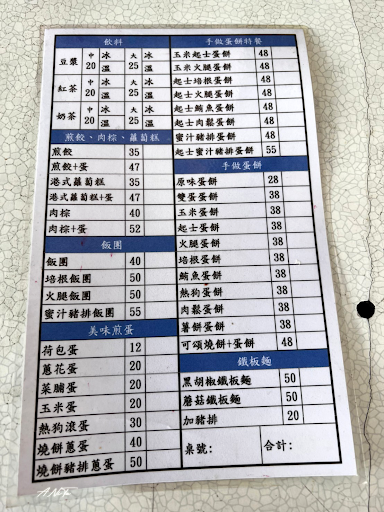 飲料
豆漿 中 20 冰 溫 大 25 冰 溫
紅茶 中 20 冰 溫 大 25 冰 溫
奶茶 中 20 冰 溫 大 25 冰 溫
煎餃、肉粽、蘿蔔糕
煎餃 35
煎餃+蛋 47
港式蘿蔔糕 35
港式蘿蔔糕+蛋 47
肉粽 40
肉粽+蛋 52
飯團
飯團 40
培根飯團 50
火腿飯團 50
蜜汁豬排飯團 55
美味煎蛋
荷包蛋 12
蔥花蛋 20
菜脯蛋 20
玉米蛋 20
熱狗滾蛋 30
燒餅蔥蛋 40
燒餅豬排蔥蛋 50
手做蛋餅特餐
玉米起士蛋餅 48
玉米火腿蛋餅 48
起士培根蛋餅 48
起士火腿蛋餅 48
起士鮪魚蛋餅 48
起士肉鬆蛋餅 48
蜜汁豬排蛋餅 48
起士蜜汁豬排蛋餅 55
手做蛋餅
原味蛋餅 28
雙蛋蛋餅 38
玉米蛋餅 38
起士蛋餅 38
火腿蛋餅 38
培根蛋餅 38
鮪魚蛋餅 38
熱狗蛋餅 38
肉鬆蛋餅 38
薯餅蛋餅 38
可頌燒餅+蛋 48
鐵板麵
黑胡椒鐵板麵 50
蘑菇鐵板麵 50
加豬排 20
桌號: 合計: